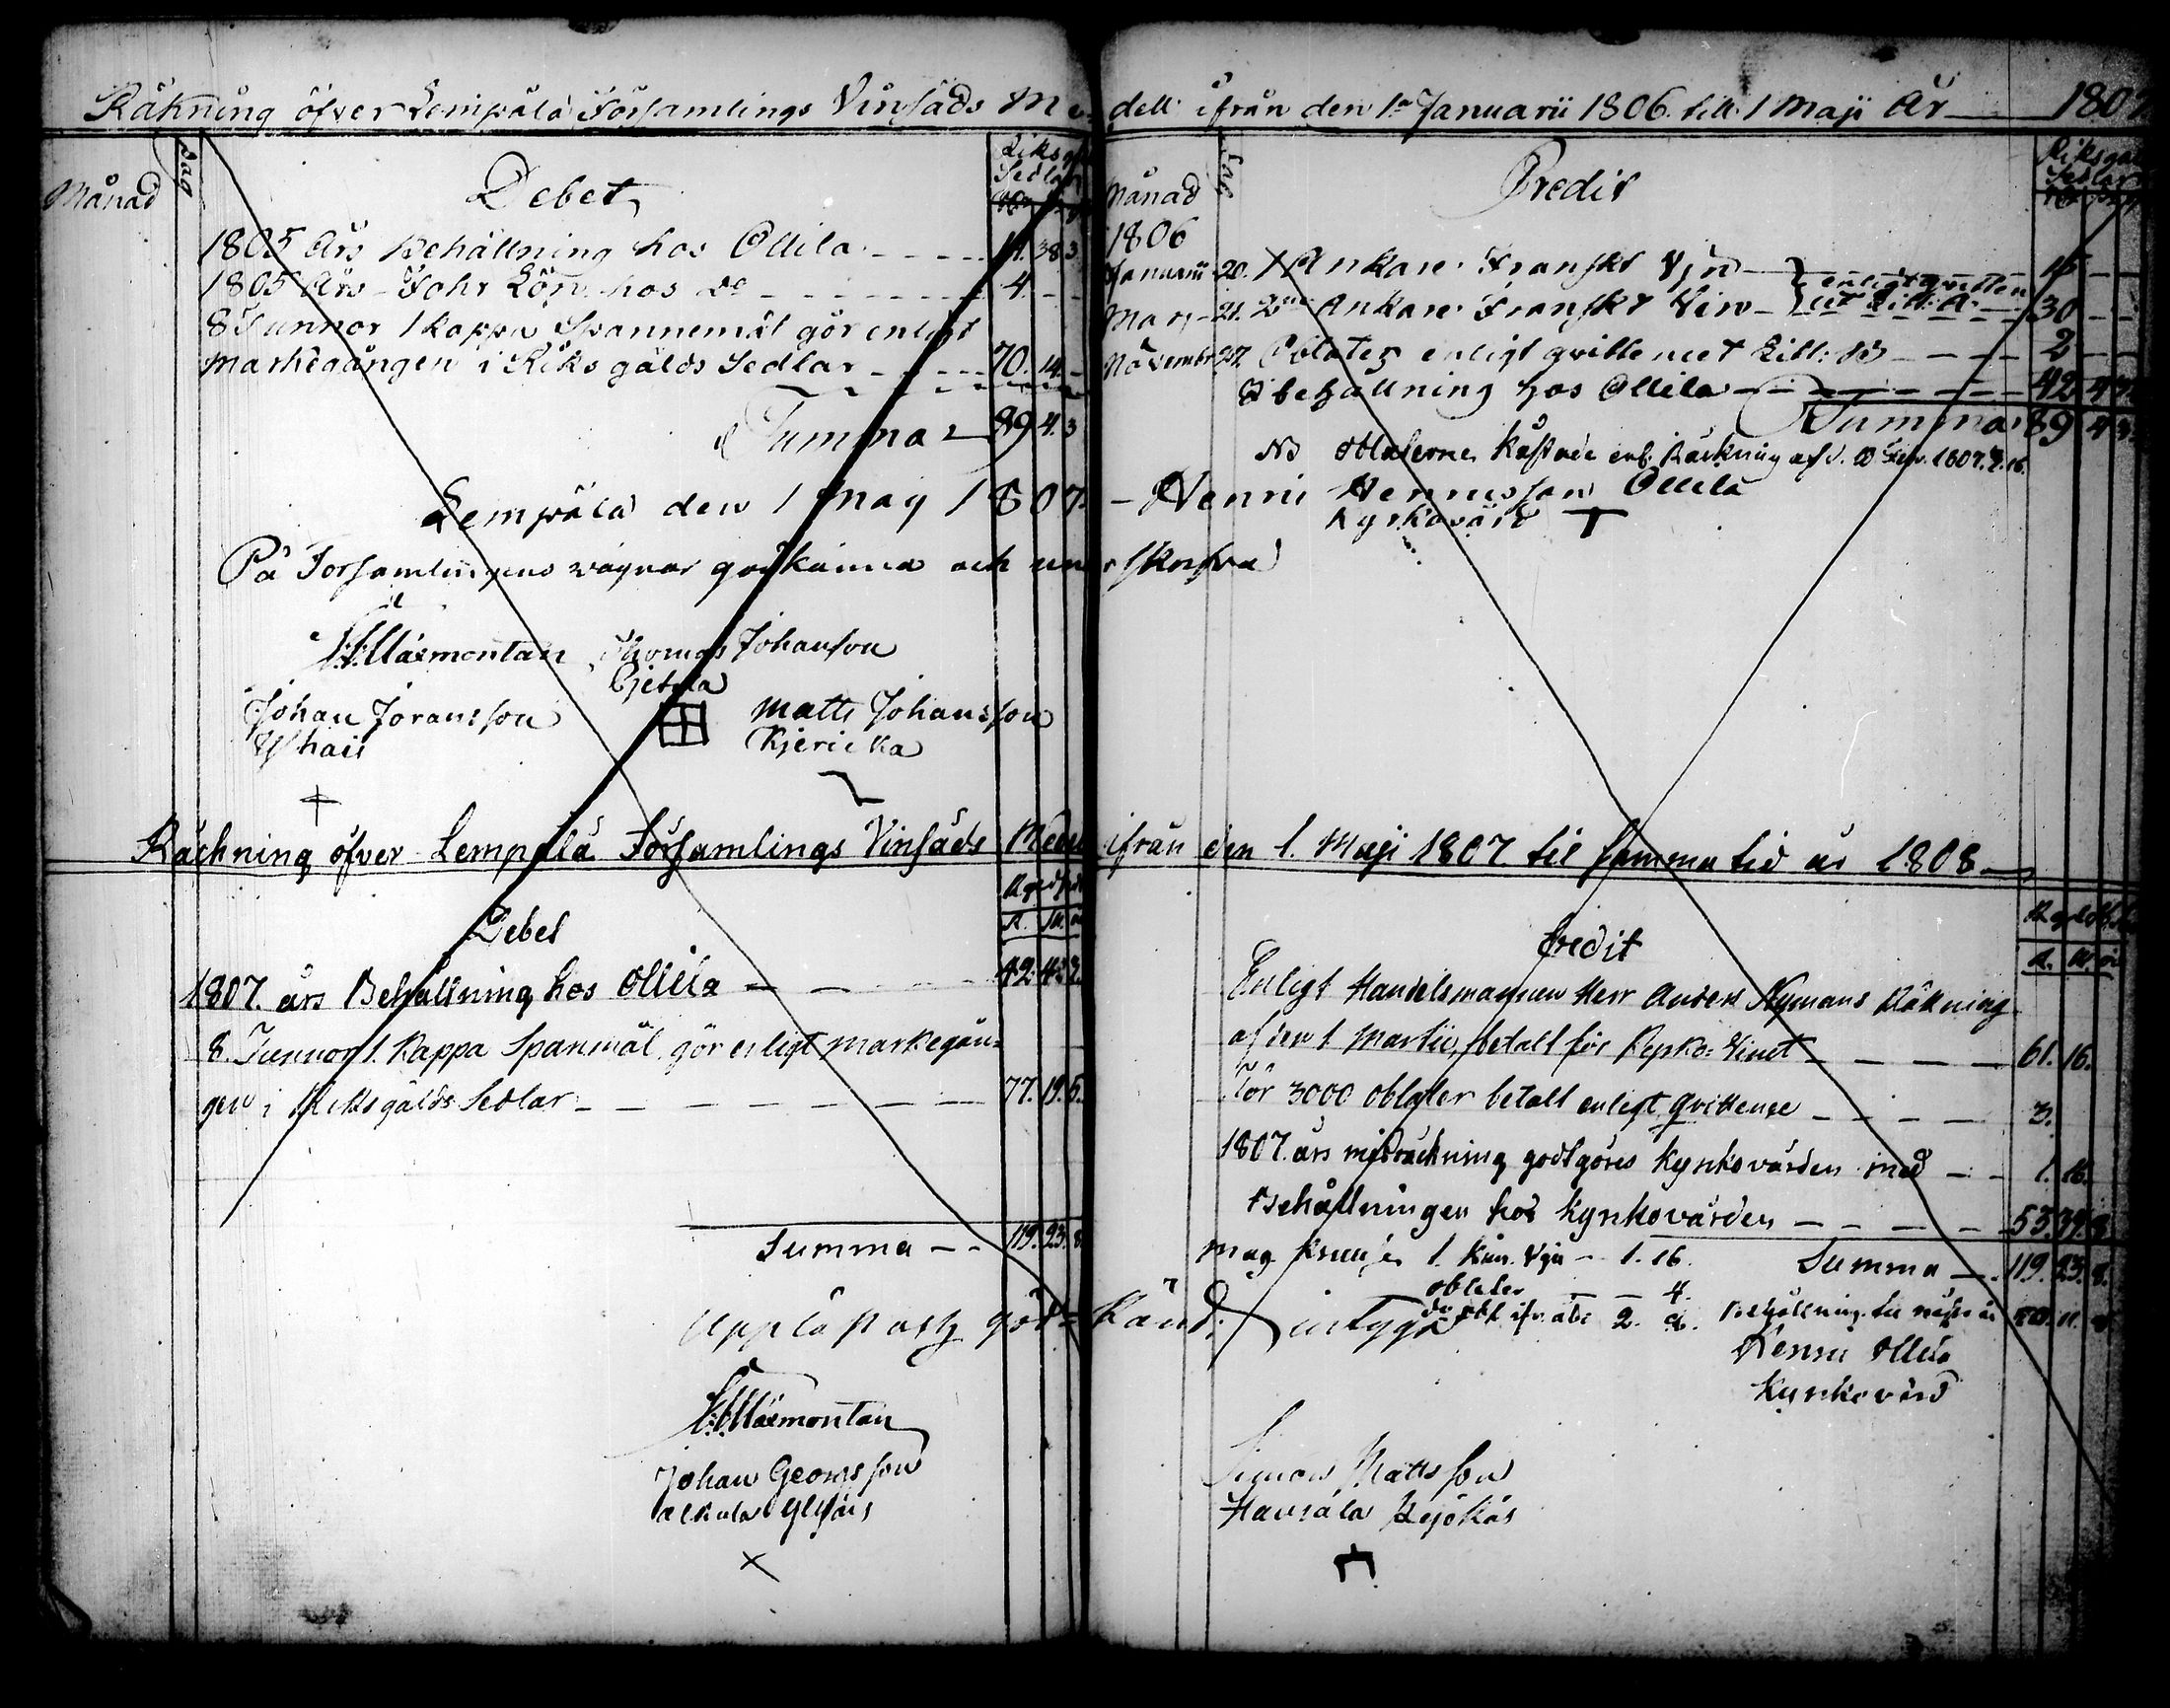 Räkning öfver Lempälä Församlings Vinsäds Me dell ifrån den 1a Januarii 1806 till 1 Maji År 1807
Månad Dag Debet Riksg Sedlar
1805 Års Behållning hos Ollila 11. 38. 3
1805 Års hos do 4.
8 Tunnor 1 kappa Spannemål gör enligt
markegången i Riksgälds Sedlar 70. 14.
Summa 89 4. 3
Månad Dag Credit Riksgäl Sedlar
1806
Januarii 20. 1 Ankare Franskt Vin enligt qvitten 15
Maij 21. 2ne Ankare Franskt Vin cet Litt: A 30
November 27. Oblater enligt qvittencet Litt: B 2
behållning hos Ollila 42 4
Summa 89 4 3
NB Oblaterne kåstade enl. Räkning af d. 1807.
Lempälä den 1 Maij 1807. Henric Henricsson Ollila
Kyrkovärd
På Församlingens vägnar godkänna och un r skrifva
Märmontan Thomas Johansson
Johan Joransson Matts Johansson
Kjericka
Räckning öfver Lempälä Församlings Vinsäds Medel ifrån den 1. Maji 1807 til samma tid år 1808
Debet
1807. års Behållning hos Ollila 42. 4. 3.
8. Tunnor 1. Kappa Spanmål gör enligt markegån-
gen i Riksgälds Sedlar 77. 19. 5.
Summa 119. 23. 8
Credit
Enligt Handelsmannen Herr Anders Nymans Räkning
af den 1 Martii, betalt för Kyrko: Vinet 61. 16.
För 3000 oblater betalt enligt qvittence 3.
1807. års misräckning godtgöres Kyrkovärden med 1. 16.
Behållningen hos Kyrkovärden 53. 39. 8.
1. Kan. Vin 1. 16. Summa 119. 23. 8.
oblater 4.
2. 8. Behållning till nästa år 50. 11. 8
Uppläst och god känd; intyga
Henric Ollila
Kyrkovärd
Märmontan
Johan Georgsson
Simon Mattsson